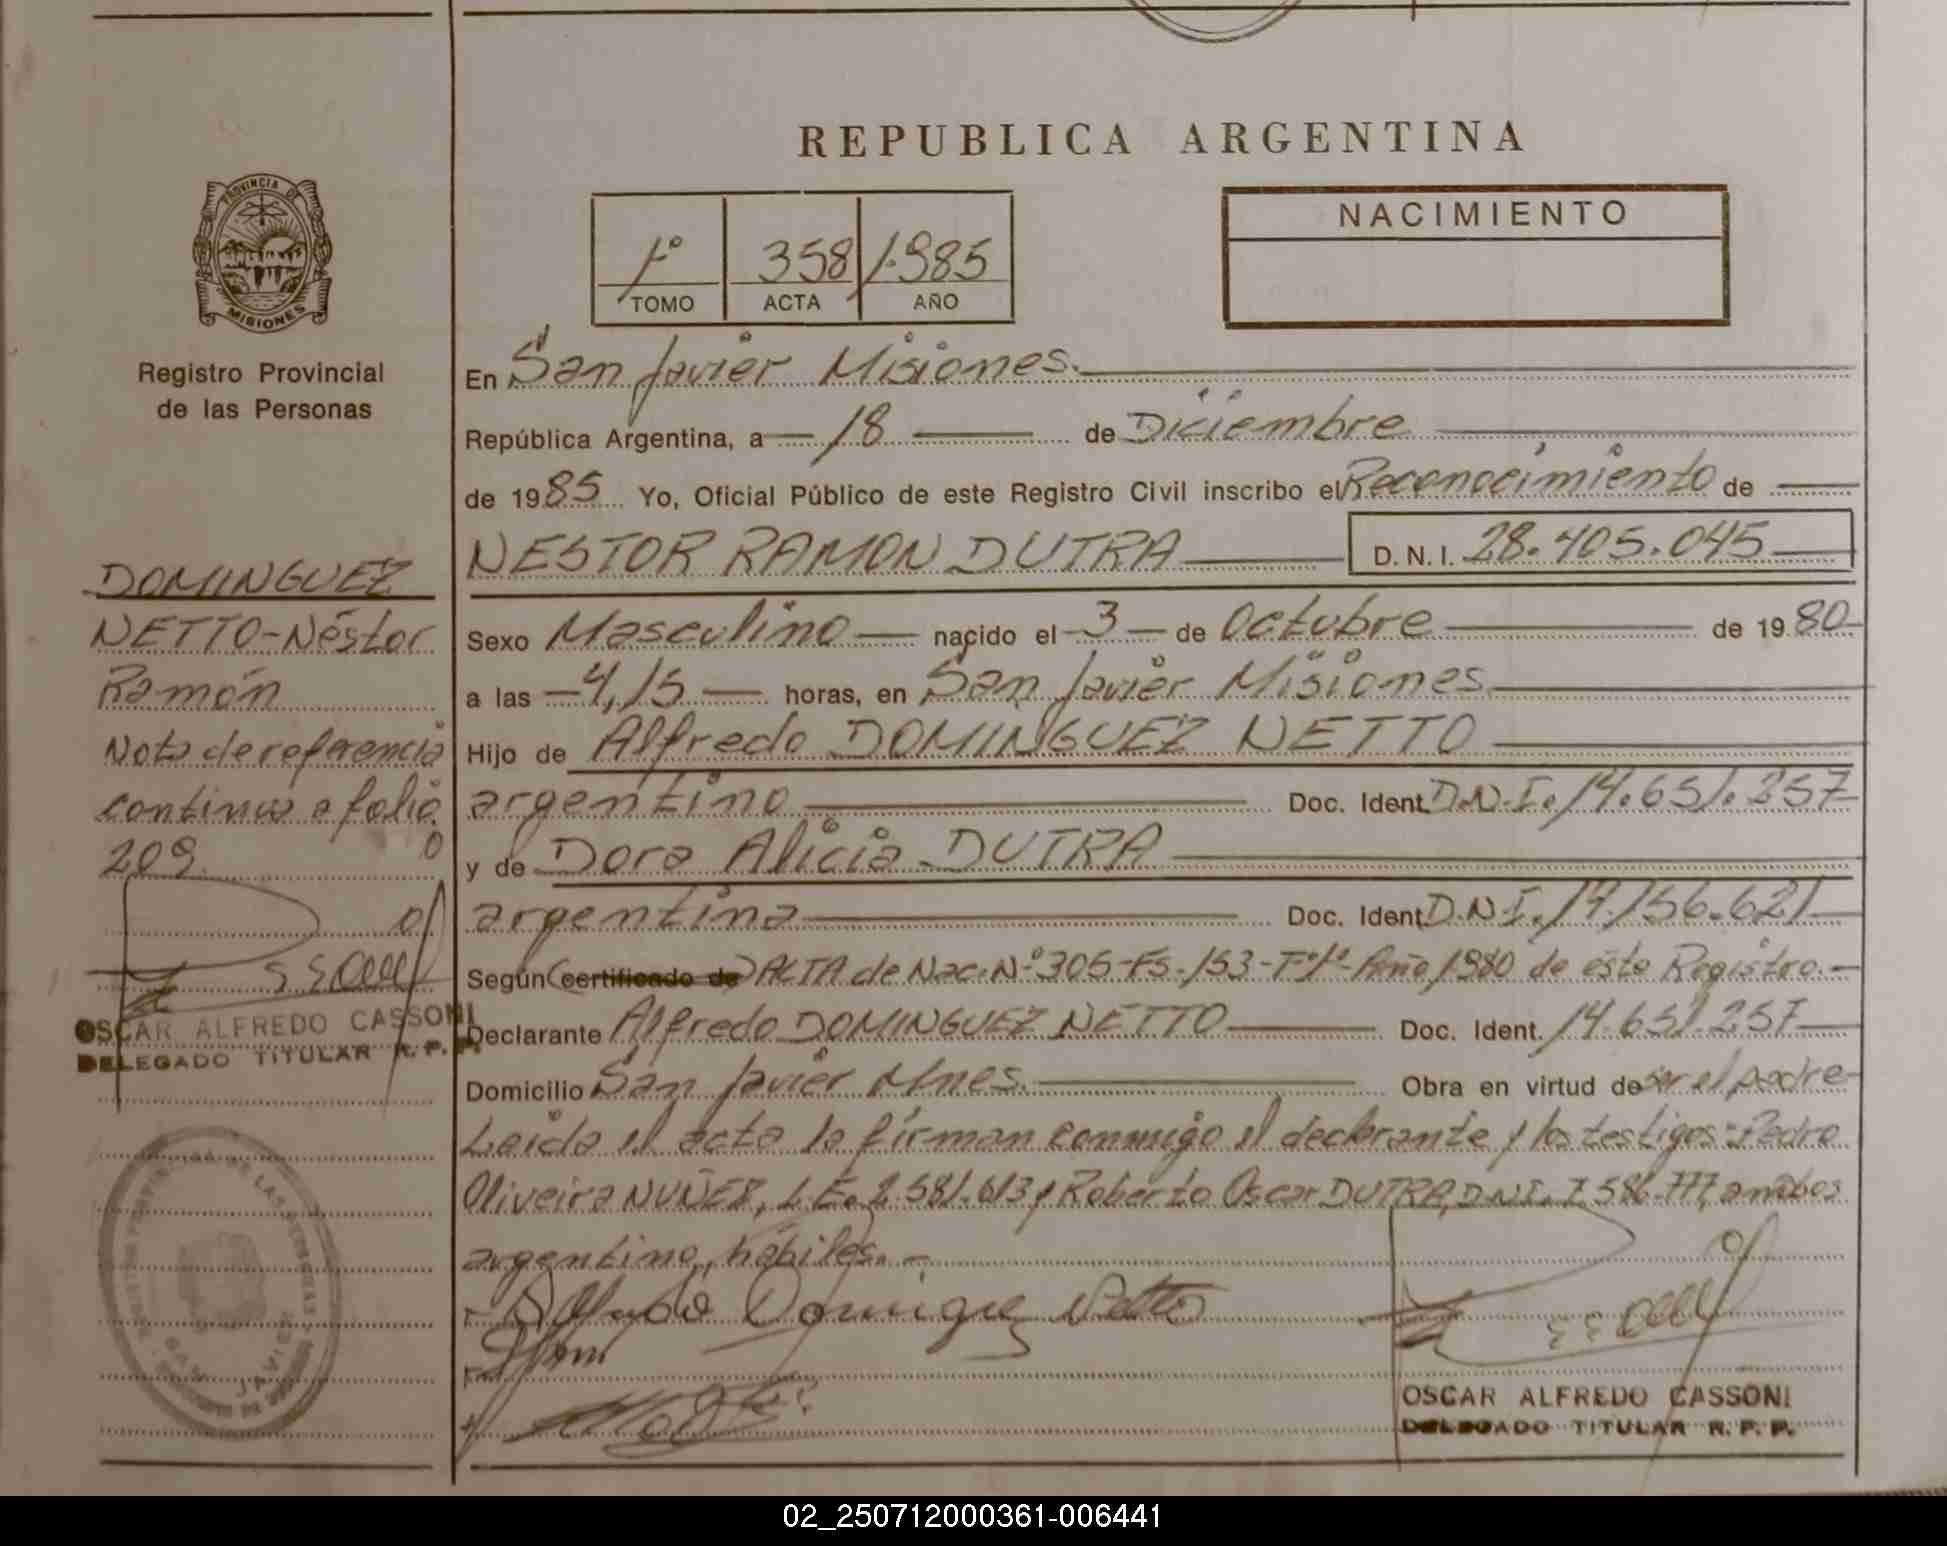 REPUBLICA ARGENTINA
PROVINCIA DE
MISIONES
Registro Provincial
de las Personas
1º 358 1.985
TOMO ACTA AÑO
NACIMIENTO
En San Javier Misiones.
República Argentina, a 18 de Diciembre
de 1985 Yo, Oficial Público de este Registro Civil inscribo el Reconocimiento de
NESTOR RAMON DUTRA D.N.I. 28.405.045
Sexo Masculino nacido el 3 de Octubre de 1980
a las 4,15 horas, en San Javier Misiones
Hijo de Alfredo DOMINGUEZ NETTO
argentino Doc. Ident. D.N.I. 14.651.257
y de Dora Alicia DUTRA
argentina Doc. Ident. D.N.I. 14.156.621
Según (certificado de) ACTA de Nac. Nº 305-Fs. 153-Tº1º-Año 1980 de este Registro.-
Declarante Alfredo DOMINGUEZ NETTO Doc. Ident. 14.651.257
Domicilio San Javier Mnes. Obra en virtud de ser el padre
Leida el acta la firman conmigo el declarante y los testigos: Pedro
Oliveira NUÑEZ, L.E. 2.581.613 y Roberto Oscar DUTRA, D.N.I. 7.586.777, ambos
argentino, hábiles.-
Alfredo Dominguez Netto
OSCAR ALFREDO CASSONI
DELEGADO TITULAR R.P.P.
DOMINGUEZ
NETTO-Néstor
Ramón
Nota de referencia
continua a folio
209.
OSCAR ALFREDO CASSONI
DELEGADO TITULAR R.P.P.
SAN JAVIER
02_250712000361-006441